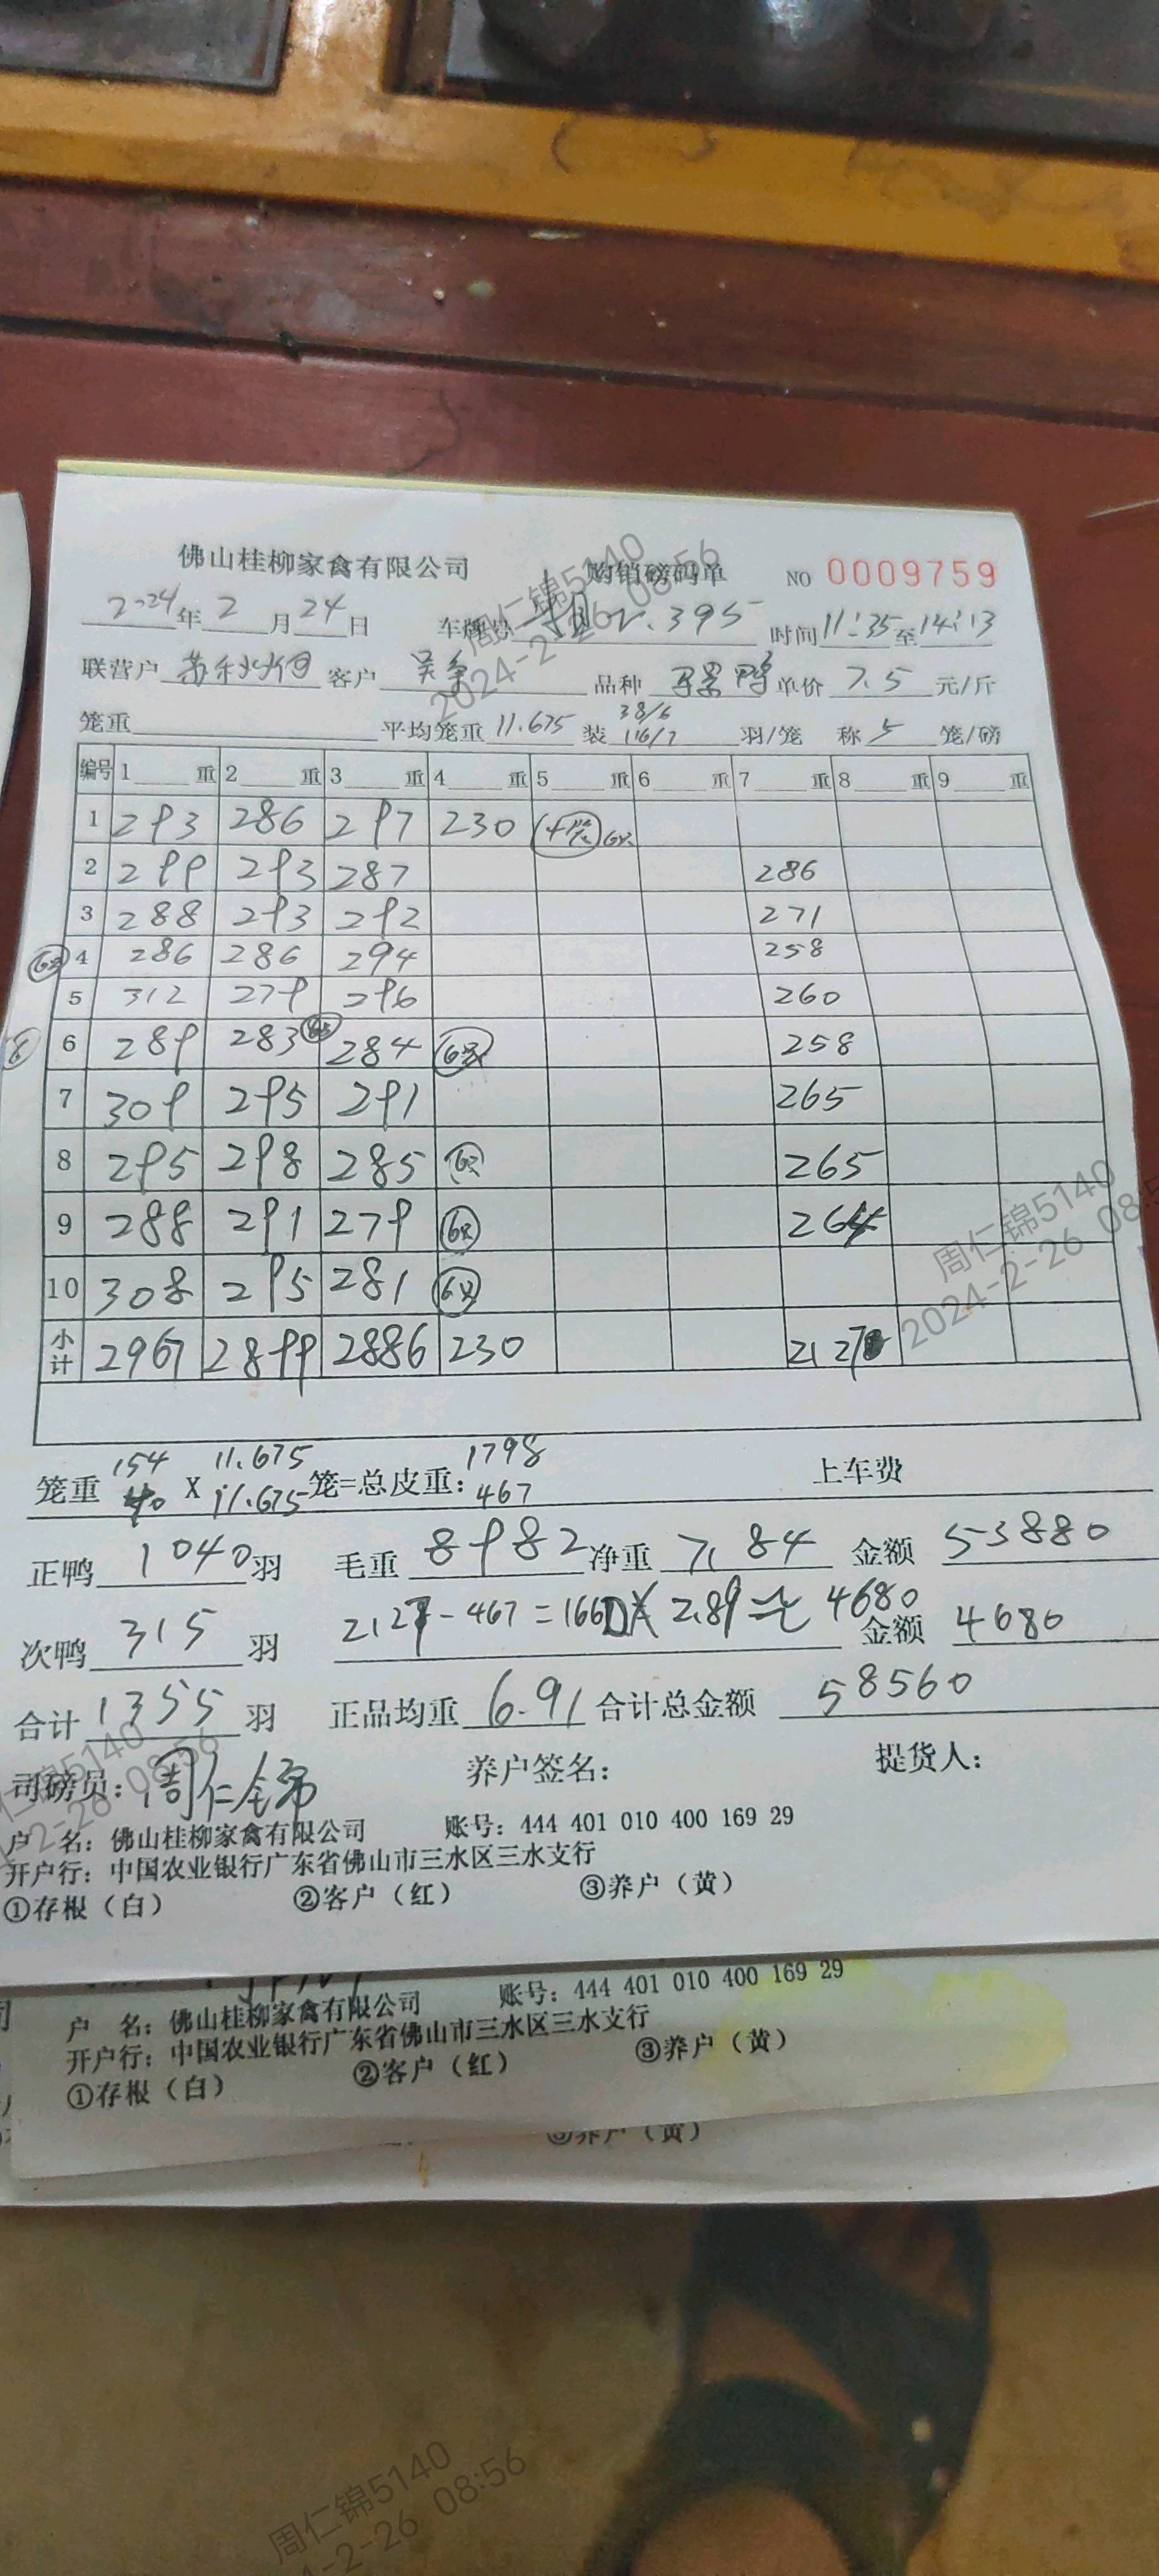 佛山桂柳家禽有限公司 购销磅码单 NO 0009759
2024年 2 月 24 日 车牌号 395 时间 11:35 至 14:13
联营户 客户 品种 鸭 单价 7.5 元/斤
38/6
笼重 平均笼重 11.675 装 116/7 羽/笼 称 5 笼/磅
编号 1 重 2 重 3 重 4 重 5 重 6 重 7 重 8 重 9 重
1 293 286 297 230 4笼 6只
2 299 293 287 286
3 288 293 292 271
6只 4 286 286 294 258
5 312 279 296 260
8 6 289 283 284 6只 258
7 309 295 291 265
8 295 298 285 6只 265
9 288 291 279 6只 264
10 308 295 281 6只
小计 2967 2899 2886 230 2127
154 11.675 1798
笼重 40 X 11.675 笼=总皮重: 467 上车费
正鸭 1040 羽 毛重 8982 净重 7184 金额 53880
2127-467=1660X2.89≈4680
次鸭 315 羽 金额 4680
合计 1355 羽 正品均重 6.91 合计总金额 58560
司磅员: 周仁锦 养户签名: 提货人:
户 名: 佛山桂柳家禽有限公司 账号: 444 401 010 400 169 29
开户行: 中国农业银行广东省佛山市三水区三水支行
①存根（白） ②客户（红） ③养户（黄）
户 名: 佛山桂柳家禽有限公司 账号: 444 401 010 400 169 29
开户行: 中国农业银行广东省佛山市三水区三水支行
①存根（白） ②客户（红） ③养户（黄）
③养户（黄）
周仁锦5140
2024-2-26 08:56
周仁锦5140
2024-2-26 08:5
仁锦5140
2-26 08:56
周仁锦5140
4-2-26 08:56